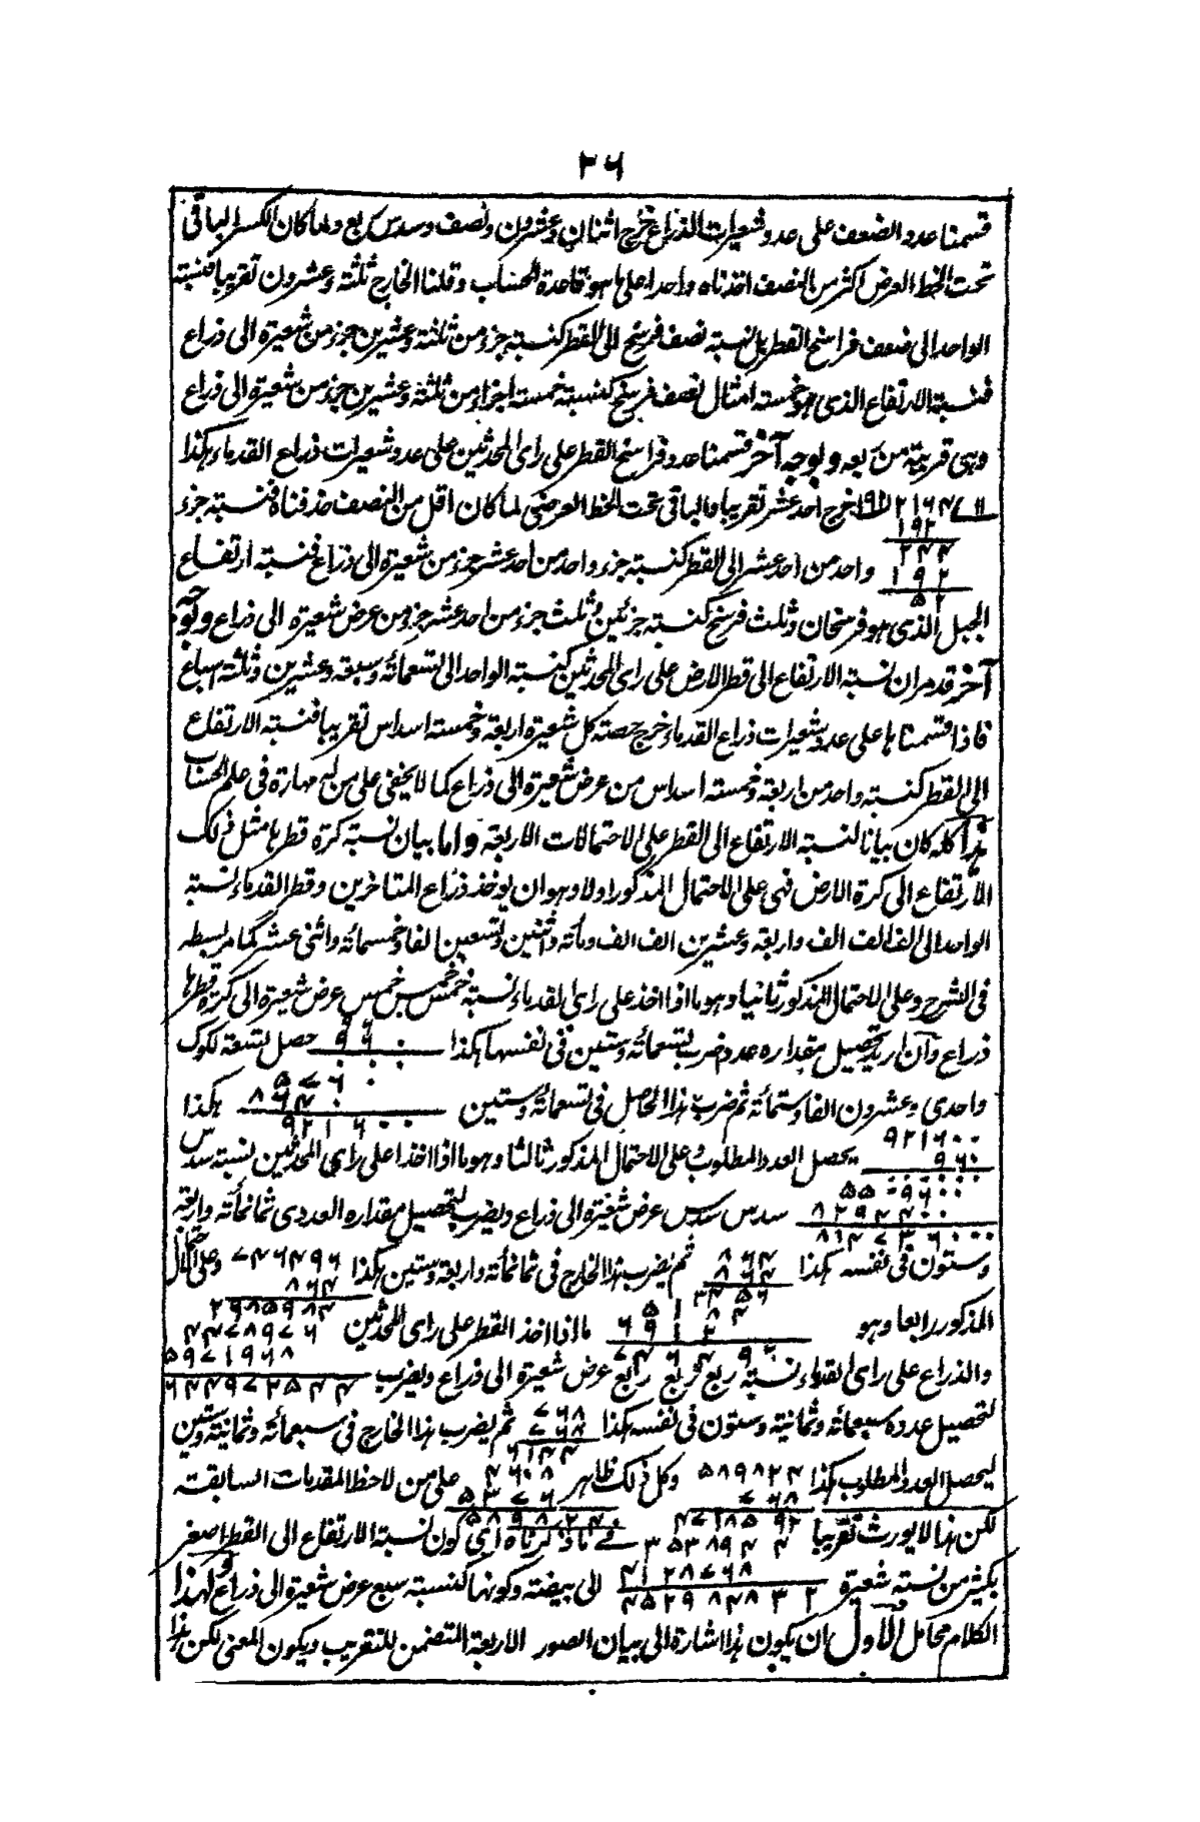 ٢٦
قسمنا عدد الضعف على عدد شعيرات الذراع خرج اثنان وعشرون ونصف وسدس ربع ولما كان الكسر الباقي
تحت الخط العرض اكثر من النصف اخذناه واحدا على ما هو قاعدة الحساب وقلنا الخارج ثلثة وعشرون تقريبا فنسبة
الواحد الى ضعف فراسخ القطر بل نسبة نصف فرسخ الى القطر كنسبة جزء من ثلثة وعشرين جزء من شعيرة الى ذراع
فنسبة الارتفاع الذى هو خمسة امثال نصف فرسخ كنسبة خمسة اجزاء من ثلثة وعشرين جزء من شعيرة الى ذراع
وهى قريبة من ربعه وبوجه آخر قسمنا عدد فراسخ القطر على راى المحدثين على عدد شعيرات ذراع القدماء هكذا
خرج احد عشر تقريبا والباقى تحت الخط العرضى لما كان اقل من النصف حذفناه فنسبة جزء
١٩٢
٢٤٤
واحد من احد عشر الى القطر كنسبة جزء واحد من احد عشر جزء من شعيرة الى ذراع فنسبة ارتفاع
١٩٢
٥٢
الجبل الذى هو فرسخان وثلث فرسخ كنسبة جزئين وثلث جزء من احد عشر جزء من عرض شعيرة الى ذراع وبوجه
آخر قد مر ان نسبة الارتفاع الى قطر الارض على راى المحدثين كنسبة الواحد الى تسعمائة وسبعة وعشرين وثلثة اسباع
فاذا قسمناها على عدد شعيرات ذراع القدماء خرج حصة كل شعيرة اربعة وخمسة اسداس تقريبا فنسبة الارتفاع
الى القطر كنسبة واحد من اربعة وخمسة اسداس من عرض شعيرة الى ذراع كما لا يخفى على من له مهارة فى علم الحساب
هذا كله كان بيانا لنسبة الارتفاع الى القطر على الاحتمالات الاربعة واما بيان نسبة كرة قطرها مثل ذلك
الارتفاع الى كرة الارض فهى على الاحتمال المذكور اولا وهو ان يوخذ ذراع المتاخرين وقطر القدماء نسبة
الواحد الى الف الف الف واربعة وعشرين الف الف ومائة واثنين وتسعين الفا وخمسمائة واثنى عشر كما مر بسطه
فى الشرح وعلى الاحتمال المذكور ثانيا وهو ما اذا اخذ على راى القدماء نسبة خمس خمس خمس عرض شعيرة الى كرة قطرها
ذراع وان اريد تحصيل مقداره عدد ضرب تسعمائة وستين فى نفسها هكذا ٩٦٠ حصل تسعة لكوك
٥٧٦٠
٨٦٤٠
واحدى وعشرون الفا وستمائة ثم ضرب هذا الحاصل فى تسعمائة وستين هكذا
٩٢١٦٠٠
٩٢١٦٠٠
٩٦٠
يحصل العدد المطلوب وعلى الاحتمال المذكور ثالثا وهو ما اذا اخذا على راى المحدثين نسبة سدس
٨٢٩٤٤٠٠
سدس سدس عرض شعيرة الى ذراع ويضرب لتحصيل مقداره العددى ثمانمائة واربعة
وستون فى نفسه هكذا ٨٦٤ ثم يضرب هذا الخارج فى ثمانمائة واربعة وستين هكذا ٧٤٦٤٩٦ وعلى الاحتمال
٨٦٤
٣٤٥٦
٨٦٤
٢٩٨٥٩٨٤
المذكور رابعا وهو ما اذا اخذ القطر على راى المحدثين ٤٤٧٨٩٧٦
٦٩١٢
٧٤٦٤٩٦
٥٩٧١٩٦٨
والذراع على راى القدماء نسبة ربع ربع ربع عرض شعيرة الى ذراع ويضرب
٦٤٤٩٧٢٥٤٤
لتحصيل عدده سبعمائة وثمانية وستون فى نفسه هكذا ٧٦٨ ثم يضرب هذا الخارج فى سبعمائة وثمانية وستين
٧٦٨
٦١٤٤
ليحصل العدد المطلوب هكذا ٥٨٩٨٢٤ وكل ذلك ظاهر ٤٦٠٨ على من لاحظ المقدمات السابقة
٧٦٨
٥٣٧٦
٥٨٩٨٢٤
٤٧١٨٥٩٢
لكن هذا لا يورث تقريبا ٣٥٣٨٩٤٤ فى ما ذكرناه اى كون نسبة الارتفاع الى القطر اصغر
٤١٢٨٧٦٨
بكثير من نسبة شعيرة ٤٥٢٩٨٤٨٣٢ الى بيضة وكونها كنسبة سبع عرض شعيرة الى ذراع ولهذا
الكلام محامل الاول ان يكون هذا اشارة الى بيان الصور الاربعة المتضمن للتقريب ويكون المعنى لكن هذا